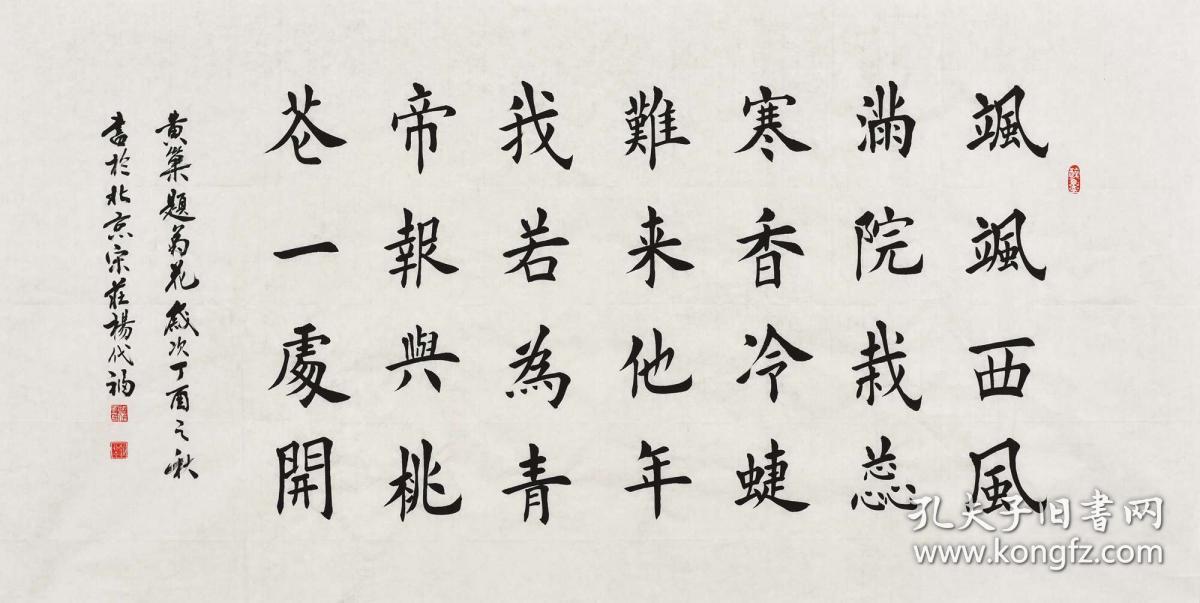 颯颯西風
滿院栽蕊
寒香冷蜨
難来他年
我若為青
帝報與桃
花一處開
黄巢題菊花歲次丁酉之秋
書於北京宋莊楊代福
孔夫子旧書网
www.kongfz.com